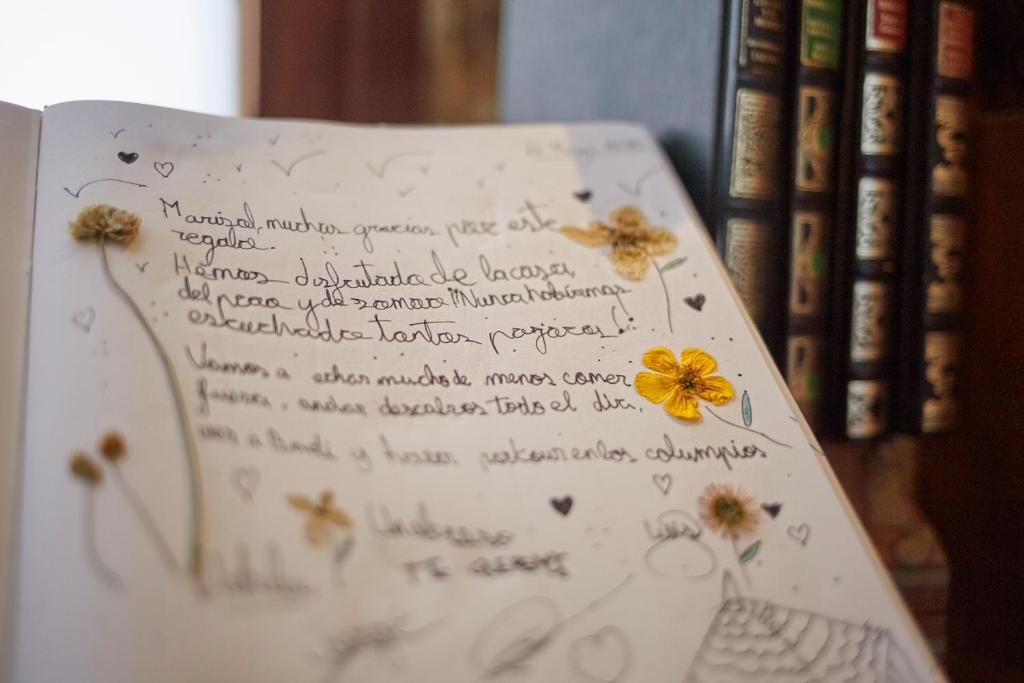 Marisol, muchas gracias por este
regalo.
Hemos disfrutado de la casa,
del prao y de xomara ¡¡Nunca habíamos
escuchado tantos pajaros!!
Vamos a echar mucho de menos comer
fuera, andar descalzos todo el día,
ver a Bandi y hacer parkour en los columpios
Un abrazo
TE QUEREMOS